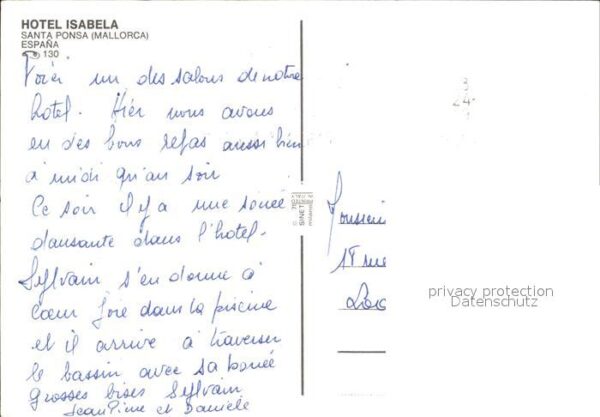 HOTEL ISABELA
SANTA PONSA (MALLORCA)
ESPAÑA
130
Voici un des salons de notre
hotel. Hier nous avons
eu des bons repas aussi bien
a midi qu'au soir
Ce soir il y a une soirée
dansante dans l'hotel.
Sylvain s'en donne à
cœur joie dans la piscine
et il arrive à traverser
le bassin avec sa bouée
grosses bises Sylvain
et Daniele
18 rue
privacy protection
Datenschutz